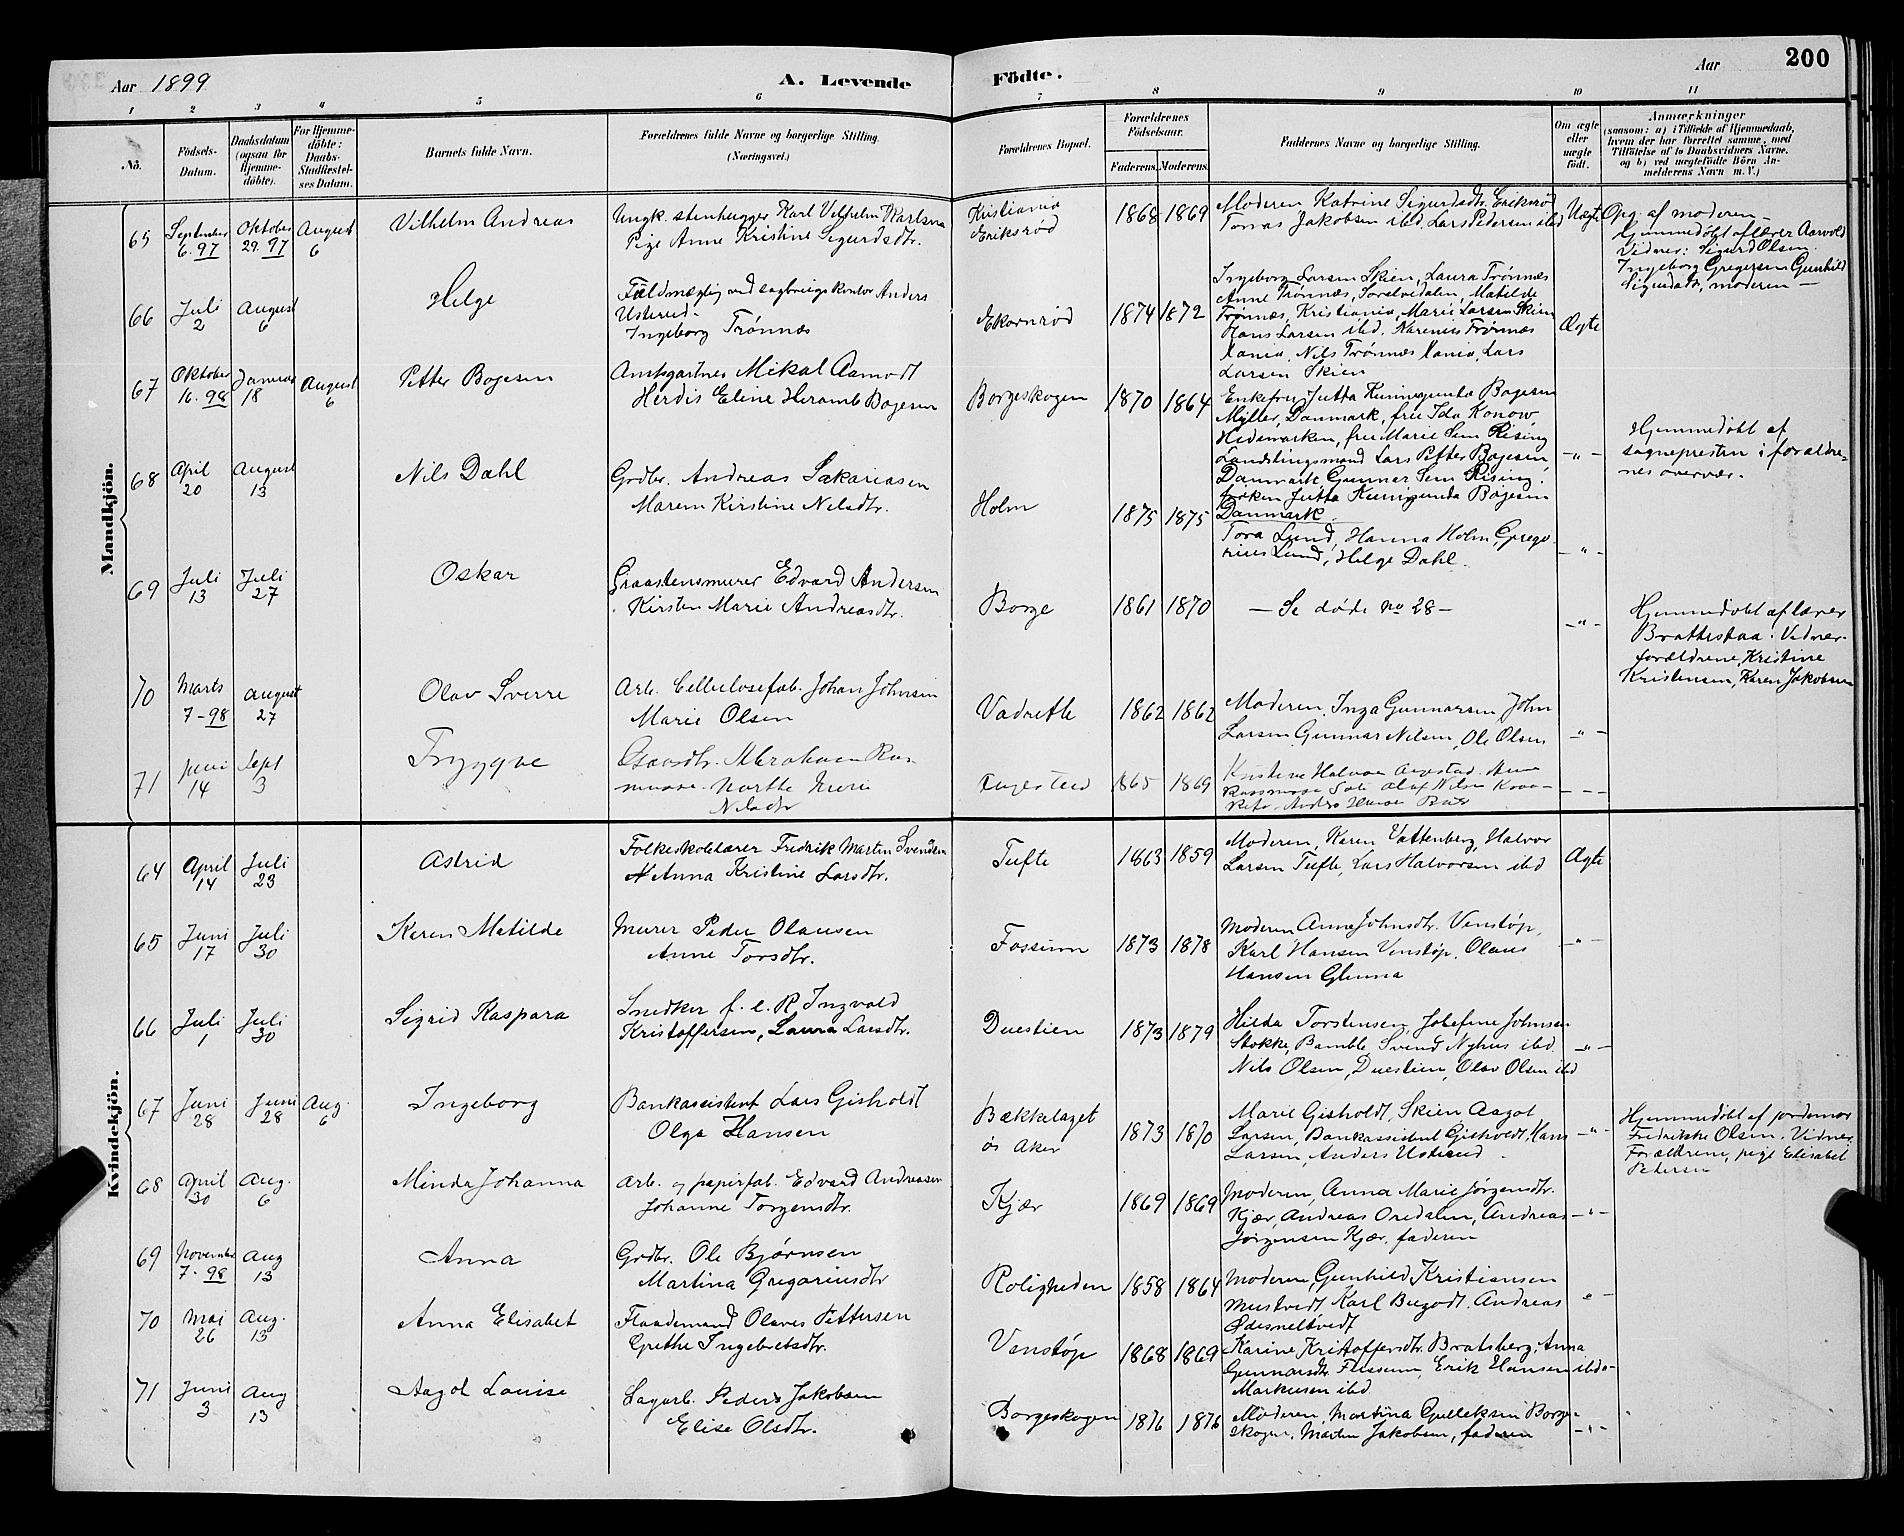 Aar 1899
A. Levende
Födte.
Aar
200
1 2 3 4 5 6 7 8 9 10 11
No.
Födsels-Datum.
Daabsdatum (ogsaa for Hjemme-döbte).
For Hjemme-döbte: Daabs-Stadfæstel-ses Datum.
Barnets fulde Navn.
Forældrenes fulde Navne og borgerlige Stilling. (Næringsvei.)
Forældrenes Bopæl.
Forældrenes Födselsaar.
Faderens. Moderens.
Faddernes Navne og borgerlige Stilling.
Om ægte eller uægte født.
Anmærkninger
(saasom: a) i Tilfælde af Hjemmedaab, hvem der har forrettet samme, med Tilföielse af to Daabsvidners Navne, og b) ved uægtefödte Börn Anmelderens Navn m. V.)
Mandkjön.
65 September 6. 97 Oktober 29. 97 August 6 Vilhelm Andreas
Ungk. stenhugger Karl Vilhelm Karlsen
Pige Anne Kristine Sigurdsdtr.
Kristiania
Eriksrød
1868 1869
Moderen Katrine Sigurdsdtr. Eriksrød
Tomas Jakobsen ibd. Lars Pedersen ibd
Uægte
Opg. af moderen
Hjemmedøbt af lærer Aarvold
Vidner: Sigurd Olsen
Ingeborg Gregersen Gunhild
Sigurdsdtr, moderen —
66 Juli 2 August 6 Helge
Fuldmægtig ved sagbrugskontor Anders
Usterud
Ingeborg Trønnæs
Ekornrød
1874 1872
Ingeborg Larsen Skien, Laura Trønnæs
Anne Trønnæs, Matilde
Trønnæs, Kristiania, Marie Larsen Skien
Hans Larsen ibd. Karenius Trønnæs
Xania, Nils Trønnæs Xania, Lars
Larsen Skien
Ægte
67 Oktober 16. 98 Januar 18 August 6 Petter Bojesen
Amtsgartner Mikal Aamodt
Herdis Eline Heramb Bojesen
Borgeskogen
1870 1864
Enkefru Jutta Kunigunta Bojesen
Myller, Danmark, frue Ida Konow
Hedemarken, frue Marie Sem Rising
Landstingsmand Lars Petter Bojesen,
Danmark, Gunnar Sem Rising.
frøken Jutta Kunigunda Bojesen
Danmark.
—"—
Hjemmedøbt af
sognepresten i forældre-
nes overvær.
68 April 20 August 13 Nils Dahl
Grdbr. Andreas Sakariasen
Maren Kirstine Nilsdtr.
Holm
1875 1875
Tora Lund, Hanna Holm, Grego-
rius Lund, Helge Dahl.
—"—
69 Juli 13 Juli 27 Oskar
Graastensmurer Edvard Andersen
Kirsten Marie Andreasdtr.
Borge
1861 1870
— Se døde no 28 —
—"—
Hjemmedøbt af lærer
Brattestaa. Vidner.
forældrene, Kristine
Kristensen, Karen Jakobsen
70 Marts 7-98 august 27 Olav Sverre
Arb. Cellulosefab. Johan Johnsen
Marie Olsen
Vadrette
1862 1862
Moderen, Inga Gunnarsen John
Larsen Gunnar Nilsen, Ole Olsen
—"—
71 juni 14 Sept 3 Tryggve
Gaardbr. Abraham Ras-
musse. Marthe Marie
Nilsdtr
1865 1869
Kvindekjön.
64 April 14 Juli 23 Astrid
Folkeskolelærer Fredrik Martin Svendsen
Anna Kristine Larsdtr.
Tufte
1863 1859
Moderen, Karen Vattenberg, Halvor
Larsen Tufte, Lars Halvorsen ibd
Ægte
65 Juni 17 Juli 30 Karen Matilde
Murer Peder Olausen
Anne Torsdtr.
Fossum
1873 1878
Moderen Anne Johnsdtr. Venstøp,
Karl Hansen Venstøp, Olaus
Hansen Glenna
—"—
66 Juli 1 Juli 30 Sigrid Kaspara
Snedker f. e. R. Ingvald
Kristoffersen, Laura Larsdtr.
Duestien
1873 1879
Hilda Torstensen, Josefine Johnsen
Stokke, Bamble Svend Nyhus ibd.
Nils Olsen, Duestien, Olav Olsen ibd
—"—
67 Juni 28 Juni 28 Aug. 6 Ingeborg
Bankassistent Lars Gisholdt
Olga Hansen
Bækkelaget
øs Aker
1873 1870
Marie Gisholdt, Skien Aagot
Larsen, Bankassistent Gisholdt, Hans
Larsen, Anders Usterud.
—"—
Hjemmedøbt af jordemor
Fredrikke Olsen. Vidner
Forældrene, pige Elisabet
Petersen
68 April 30 Aug. 6 Minda Johanna
Arb. og papirfab. Edvard Andreasen
Johanne Torgersdtr.
Kjær
1869 1869
Moderen, Anna Marie Jørgensdtr.
Kjær, Andreas Oredalen, Andreas
Jørgensen Kjær, faderen
—"—
69 November 7-98 Aug 13 Anna
Grdbr. Ole Bjørnsen
Martina Gregoriusdtr
Roligheden
1858 1864
Moderen, Gunhild Kristiansen
Mustvedt Karl Bugodt. Andreas
Ødesneltvedt
"—
70 Mai 26 Aug. 13 Anna Elisabet
Flaademand Olaves Pettersen
Grethe Ingebretsdtr.
Venstøp
1868 1869
Karine Kristoffersdtr. Bratsberg, Anna
Gunnarsdtr Fossum, Erik Hansen ibd
Markusen ibd
71 Juni 3 Aug 13 Aagot Louise
Sagarb. Peder Jakobsen
Elise Olsdtr.
Borgeskogen
1876 1876
Moderen, Martina Gulleksen Borge-
skogen, Martin Jakobsen, faderen
—"—